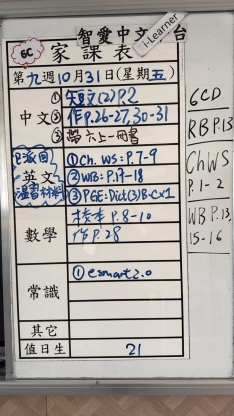 智愛中文平台
i-Learner
6C
家課表
第九週10月31日(星期五)
中文
①短文(2)P.2
②作P.26-27,30-31
③帶六上一冊書
已派回
英文
溫習材料
①Ch. WS: P.7-9
②WB: P.17-18
③PGE: Dict(3)B. Cx1
數學
校本 P.8-10
作P.28
常識
①esmart2.0
其它
值日生
21
6CD
RB P.13
Ch WS
P.1-2
WB P.13,
15-16